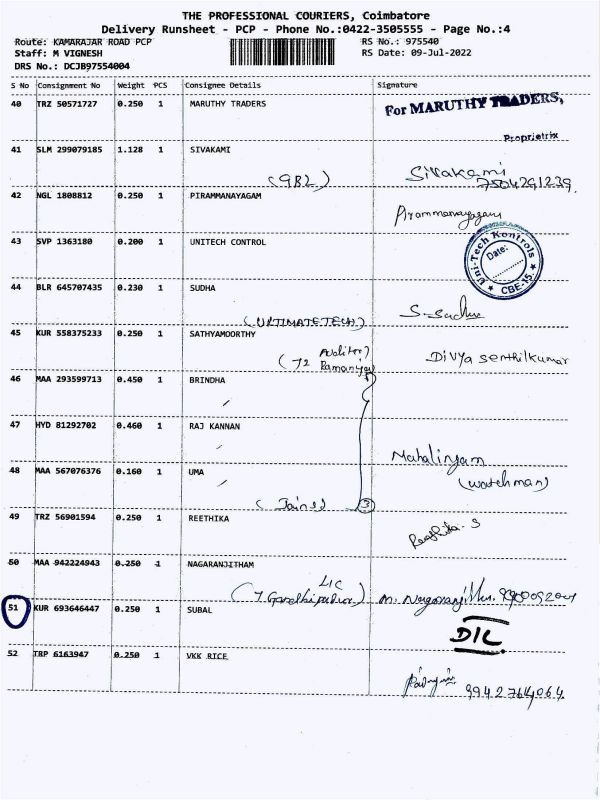 THE PROFESSIONAL COURIERS, Coimbatore
Delivery Runsheet - PCP - Phone No.:0422-3505555 - Page No.:4
Route: KAMARAJAR ROAD PCP RS No.: 975540
Staff: M VIGNESH RS Date: 09-Jul-2022
DRS No.: DCJB97554004
S No Consignment No Weight PCS Consignee Details Signature
40 TRZ 50571727 0.250 1 MARUTHY TRADERS For MARUTHY TRADERS,
Proprietrix
41 SLM 299079185 1.128 1 SIVAKAMI Sivakami
(9B2) 7504291239.
42 NGL 1808812 0.250 1 PIRAMMANAYAGAM Pirammanayagam
43 SVP 1363180 0.200 1 UNITECH CONTROL Uni-Tech Kontrols Date: CBE-15.
44 BLR 645707435 0.230 1 SUDHA S-Sudha
(ULTIMATE TECH)
45 KUR 558375233 0.250 1 SATHYAMOORTHY Divya Senthilkumar
(72 Auditor)
46 MAA 293599713 0.450 1 BRINDHA
47 HYD 81292702 0.460 1 RAJ KANNAN Mahalingam
48 MAA 567076376 0.160 1 UMA (watchman)
(Jains) 3
49 TRZ 56901594 0.250 1 REETHIKA Reethika-S
50 MAA 942224943 0.250 1 NAGARANJITHAM
LIC
51 KUR 693646447 0.250 1 SUBAL
D/L
52 TRP 6163947 0.250 1 VKK RICE
9942764064